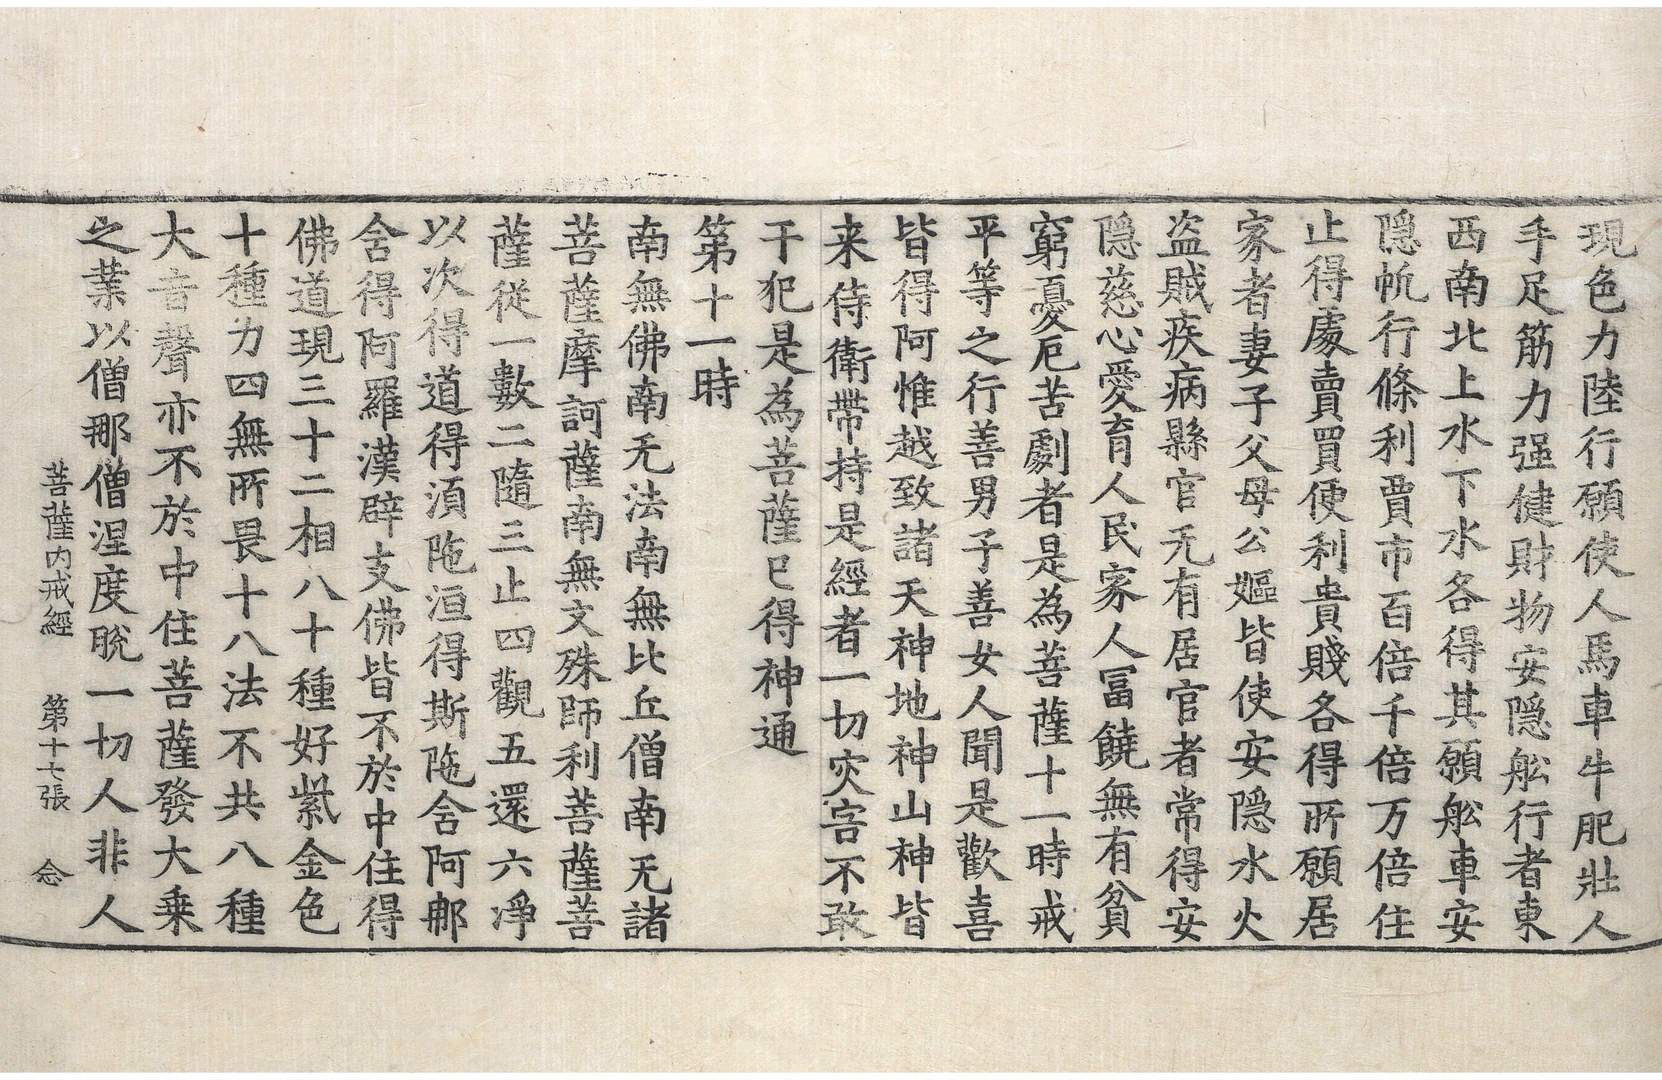 現色力陸行願使人馬車牛肥壯人
手足筋力强健財物安隱舩行者東
西南北上水下水各得其願舩車安
隱帆行條利賈市百倍千倍万倍住
止得處賣買便利貴賤各得所願居
家者妻子父母公嫗皆使安隱水火
盗賊疾病縣官无有居官者常得安
隱慈心愛育人人民家人冨饒無有貧
窮憂厄苦劇者是為菩薩十一時戒
平等之行善男子善女人聞是歡喜
皆得阿惟越致諸天神地神山神皆
来侍衛帶持是經者一切灾害不敢
干犯是為菩薩已得神通
第十一時
南無佛南无法南無比丘僧南无諸
菩薩摩訶薩南無文殊師利菩薩菩
薩從一數二隨三止四觀五還六淨
以次得道得湏陁洹得斯陁含阿那
含得阿羅漢辟支佛皆不於中住得
佛道現三十二相八十種好紫金色
十種力四無所畏十八法不共八種
大音聲亦不於中住菩薩發大乗
之業以僧那僧涅度脫一切人非人
菩薩内戒經　第十七張　念